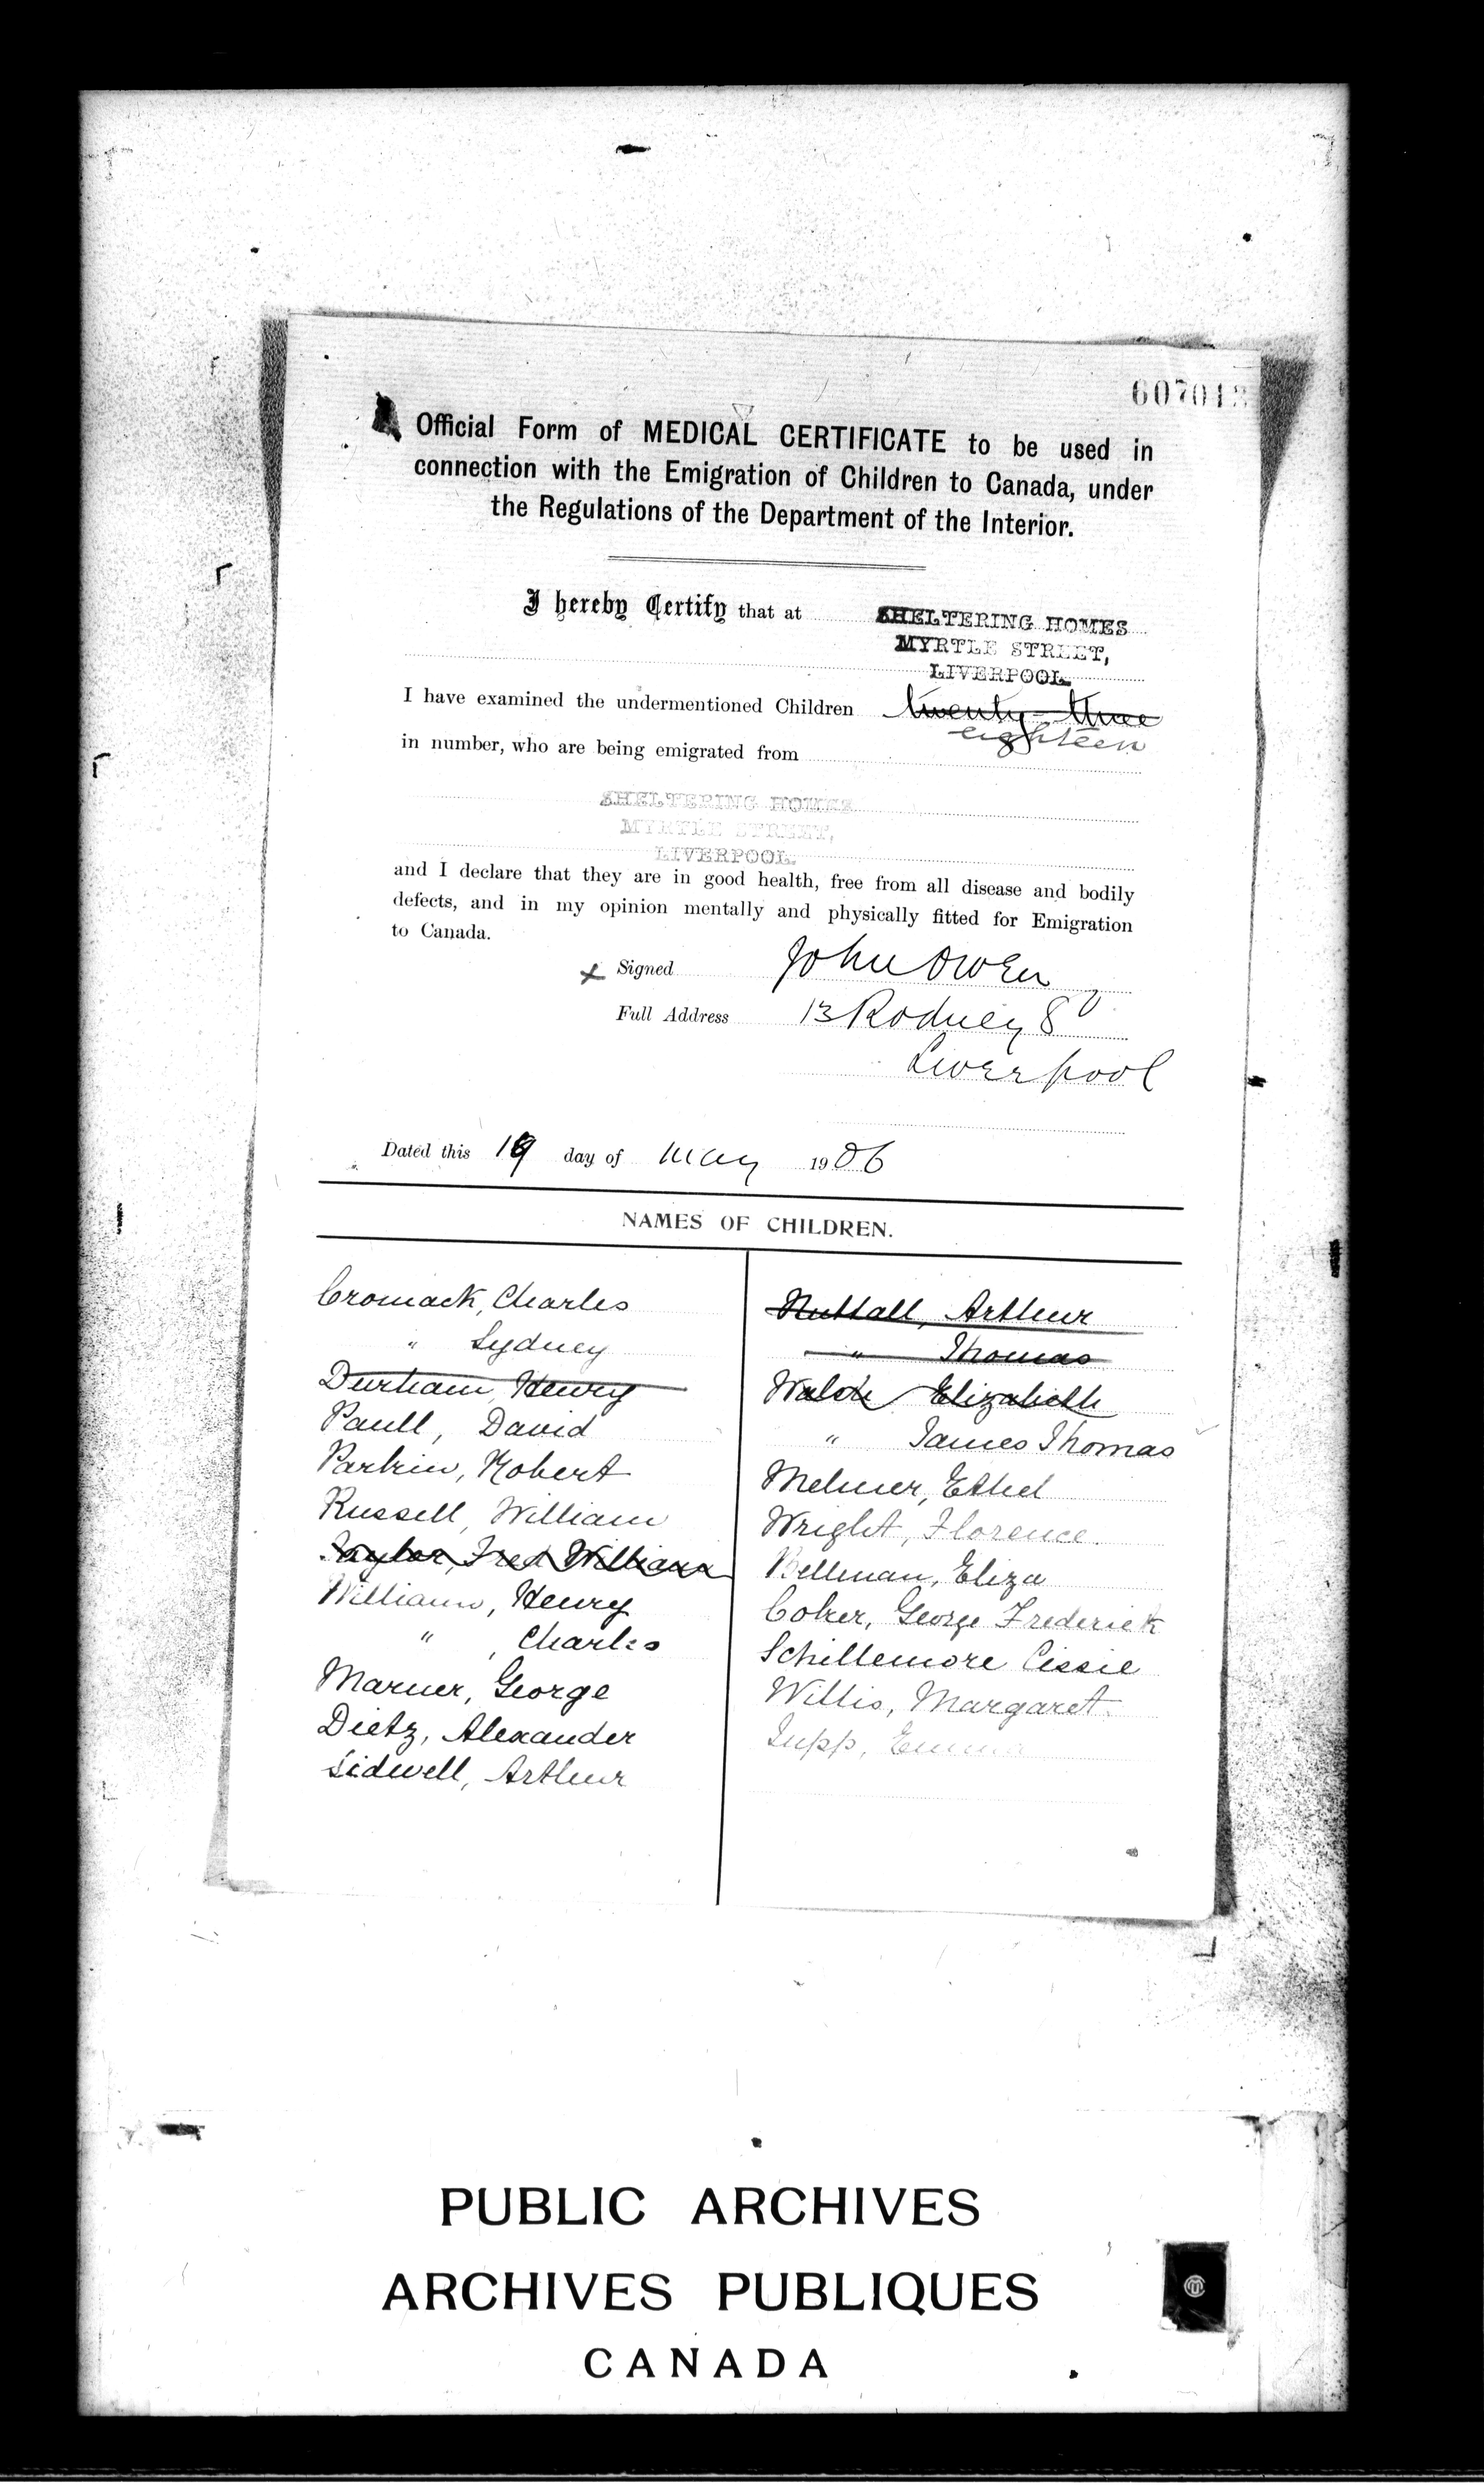 607013
Official Form of MEDICAL CERTIFICATE to be used in
connection with the Emigration of Children to Canada, under
the Regulations of the Department of the Interior.
I hereby Certify that at SHELTERING HOMES
MYRTLE STREET,
LIVERPOOL.
I have examined the undermentioned Children twenty-three
eighteen
in number, who are being emigrated from
SHELTERING HOMES
MYRTLE STREET,
LIVERPOOL.
and I declare that they are in good health, free from all disease and bodily
defects, and in my opinion mentally and physically fitted for Emigration
to Canada.
x Signed John Owen
Full Address 13 Rodney St
Liverpool
Dated this 19 day of May 1906
NAMES OF CHILDREN.
Cromack, Charles
" Sydney
Durham, Henry
Paull, David
Parkin, Robert
Russell, William
Taylor, Fred William
Williams, Henry
" , Charles
Marner, George
Dietz, Alexander
Sidwell, Arthur
Nuttall, Arthur
" Thomas
Walsh Elizabeth
" James Thomas
Melmer, Ethel
Wright, Florence
Bellman, Eliza
Coker, George Frederick
Schillemore Cissie
Willis, Margaret
Jupp, Emma
PUBLIC ARCHIVES
ARCHIVES PUBLIQUES
CANADA